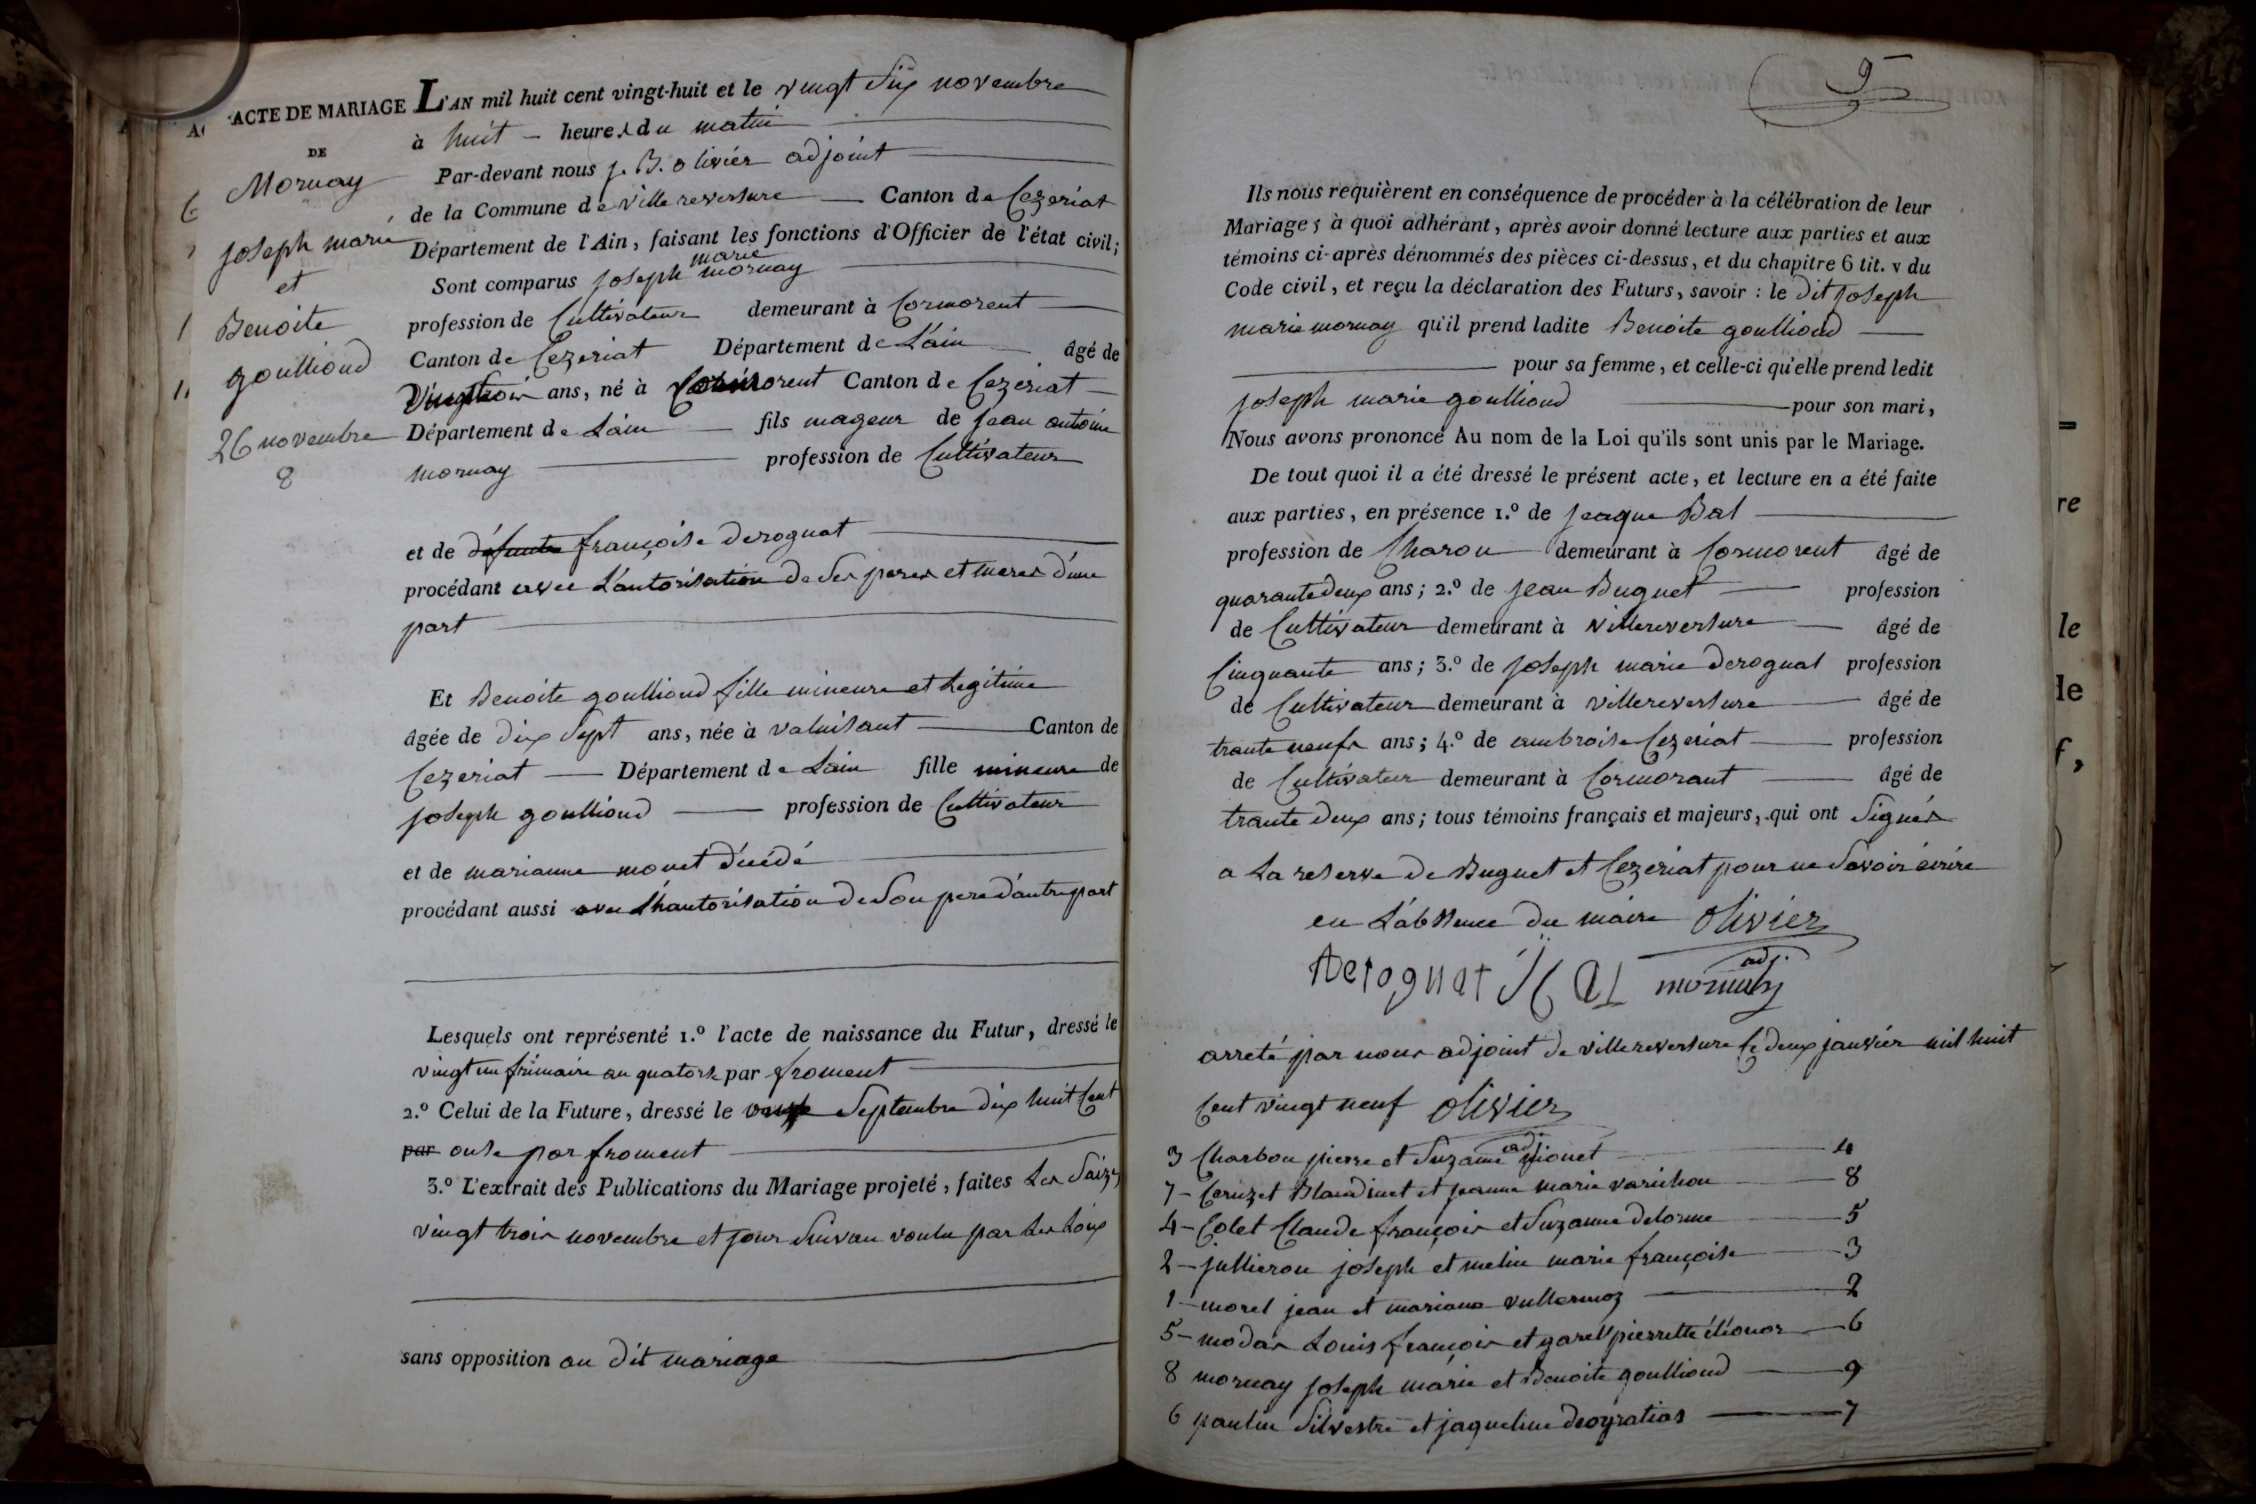 ACTE DE MARIAGE
DE
Mornay
joseph marie
et
Benoite
goulliond
26 novembre
8
L'AN mil huit cent vingt-huit et le vingt Six novembre
à huit – heures du matin
Par-devant nous J. B. olivier adjoint
de la Commune de villereversure Canton de Cezeriat
Département de l'Ain, faisant les fonctions d'Officier de l'état civil;
marie
Sont comparus joseph mornay
profession de Cultivateur demeurant à Cormorent
Canton de Cezeriat Département de L'ain âgé de
Vingttrois ans, né à Cormorent Canton de Cezeriat
Département de Lain fils mageur de jean antoine
mornay profession de Cultivateur
et de défunte françoise derognat
procédant avec L'autorisation de Ses peres et meres d'une
part
Et Benoite goulliond fille mineure et Legitime
âgée de dix Sept ans, née à valuisant Canton de
Cezeriat Département de Lain fille mineure de
joseph goulliond profession de Cultivateur
et de marianne monet décédé
procédant aussi avec L'hautorisation de Son pere d'autre part
Lesquels ont représenté 1.º l'acte de naissance du Futur, dressé le
vingt un frimaire an quatorse par froment
2.º Celui de la Future, dressé le Septembre dix huit Cent
par onse par froment
3.º L'extrait des Publications du Mariage projeté, faites Les Saize
vingt trois novembre et jour Suivan voulu par Les Loix
sans opposition au dit mariage
9
Ils nous requièrent en conséquence de procéder à la célébration de leur
Mariage; à quoi adhérant, après avoir donné lecture aux parties et aux
témoins ci-après dénommés des pièces ci-dessus, et du chapitre 6 tit. v du
Code civil, et reçu la déclaration des Futurs, savoir : le dit joseph
marie mornay qu'il prend ladite Benoite goulliond
pour sa femme, et celle-ci qu'elle prend ledit
joseph marie goulliond pour son mari,
Nous avons prononcé Au nom de la Loi qu'ils sont unis par le Mariage.
De tout quoi il a été dressé le présent acte, et lecture en a été faite
aux parties, en présence 1.º de jeaque Bal
profession de Charon demeurant à Cormorent âgé de
quarante deux ans; 2.º de jean Buguet profession
de Cultivateur demeurant à villereversure âgé de
Cinquante ans; 3.º de joseph marie derognat profession
de Cultivateur demeurant à villereversure âgé de
trante neufs ans; 4.º de ambroise Cezeriat profession
de Cultivateur demeurant à Cormorant âgé de
trante deux ans; tous témoins français et majeurs, qui ont Signés
a La reserve de Buguet et Cezeriat pour ne Savoir écrire
en L'absence du maire olivier
adj.
derognat mornay
arreté par nous adjoint de villereversure Le deux janvier mil huit
Cent vingt neuf olivier
adj.
3 Charbon pierre et Suzanne 4
7 – Blandinet et jeanne marie varichon 8
4 – Colet Claude françois et Suzanne delorme 5
2 – jullieron joseph et melin marie françoise 3
1 – morel jean et mariane vullermoz 2
5 – modas Louis françois et garel pierrette éléonor 6
8 mornay joseph marie et Benoite goulliond 9
6 paulin Silvestre et jaqueline deogratias 7